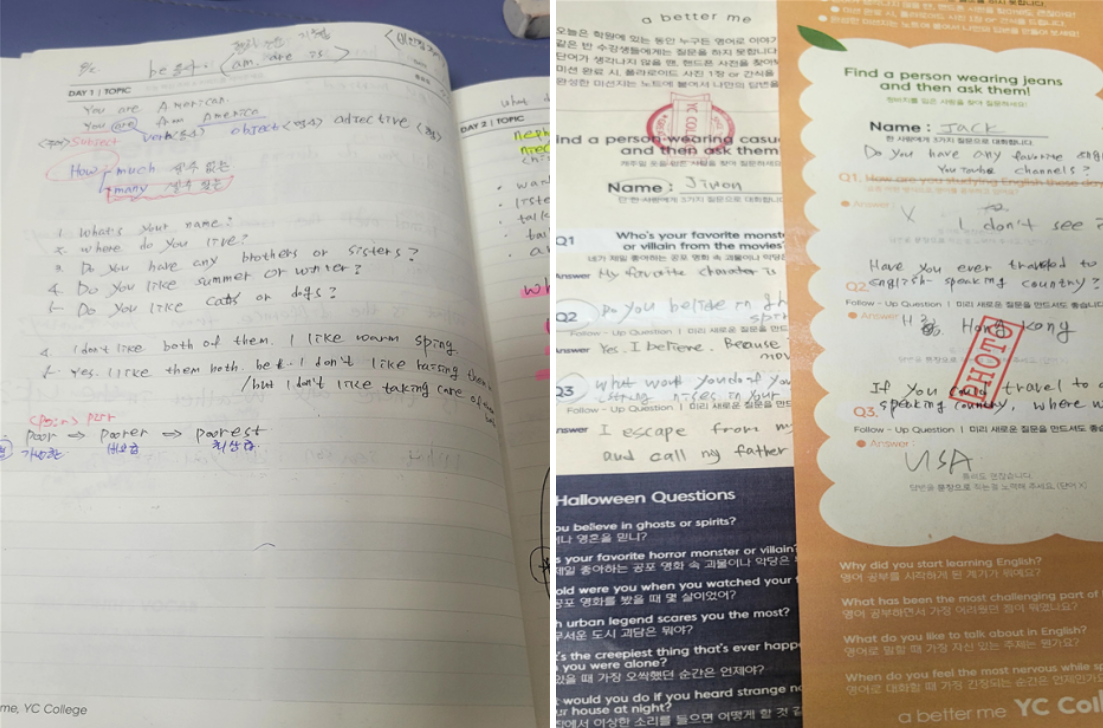 be동사
am, are is
DAY 1 | TOPIC
You are American.
You are Am America
<주어> Subject verb(동사) object<명사> adjective <형>
How much 셀수 없는
many 셀수 있는
1. What's your name?
2. where do you live?
3. Do you have any brothers or sisters?
4. Do you like summer or winter?
5. Do you like cats or dogs?
4. I don't like both of them. I like warm sping.
5. Yes. I like them both. I don't like
/but I don't like taking care of
poor ⇒ poorer ⇒ poorest
가난한 비교급 최상급
me, YC College
what
DAY 2 | TOPIC
a better me
오늘은 학원에 있는 동안 누구든 영어로 이야기
같은 반 수강생들에게는 질문을 하지 못합니다
단어가 생각나지 않을 땐, 핸드폰 사전을 찾아
미션 완료 시, 폴라로이드 사진 1장 or 간식을
완성한 미션지는 노트에 붙여서 나만의 답변을
YC COLL
ind a person wearing casu
and then ask them
Name : Jiwon
한 사람에게 3가지 질문으로 대화합니다
Q1 Who's your favorite monst
or villain from the movies
네가 제일 좋아하는 공포 영화 속 괴물이나 악당
Answer My favorite charater is
Q2 Do you belive in gh
Follow - Up Question | 미리 새로운 질문을 만드
Answer Yes. I believe. Because
Q3 what
Follow - Up Question | 미리 새로운 질문을 만드
nswer I escape from my
and call my father
Halloween Questions
ou believe in ghosts or spirits?
나 영혼을 믿니?
s your favorite horror monster or villain?
제일 좋아하는 공포 영화 속 괴물이나 악당은
old were you when you watched your
공포 영화를 봤을 때 몇 살이었어?
h urban legend scares you the most?
무서운 도시 괴담은 뭐야?
's the creepiest thing that's ever happ
you were alone?
있을 때 가장 오싹했던 순간은 언제야?
would you do if you heard strange no
ur house at night?
집에서 이상한 소리를 들으면 어떻게 할 것 같
미션 완료 시, 폴라로이드 사진 1장 or 간식을 드립니다.
완성한 미션지는 노트에 붙여서 나만의 답변을 만들어 보세요!
Find a person wearing jeans
and then ask them!
청바지를 입은 사람을 찾아 질문하세요!
Name : Jack
한 사람에게 3가지 질문으로 대화합니다.
Do you have any favorite engl
You Tube channels?
Q1. How are you studying English these day
Answer : X I don't see
Have you ever traveled to
Q2. english- speaking country?
Follow - Up Question | 미리 새로운 질문을 만드셔도 좋습니다
Answer Hong Kong
PHOTO
If you could travel to
Q3. speaking country, where w
Follow - Up Question | 미리 새로운 질문을 만드셔도 좋습
Answer :
USA
답변을 문장으로 쥐는걸 노력해 주세요. (단어 X)
Why did you start learning English?
영어 공부를 시작하게 된 계기가 뭐예요?
What has been the most challenging part of
영어 공부하면서 가장 어려웠던 점이 뭐였나요?
What do you like to talk about in English?
영어로 말할 때 가장 자신 있는 주제는 뭔가요?
When do you feel the most nervous while sp
영어로 대화할 때 가장 긴장되는 순간은 언제인가요
a better me YC Coll